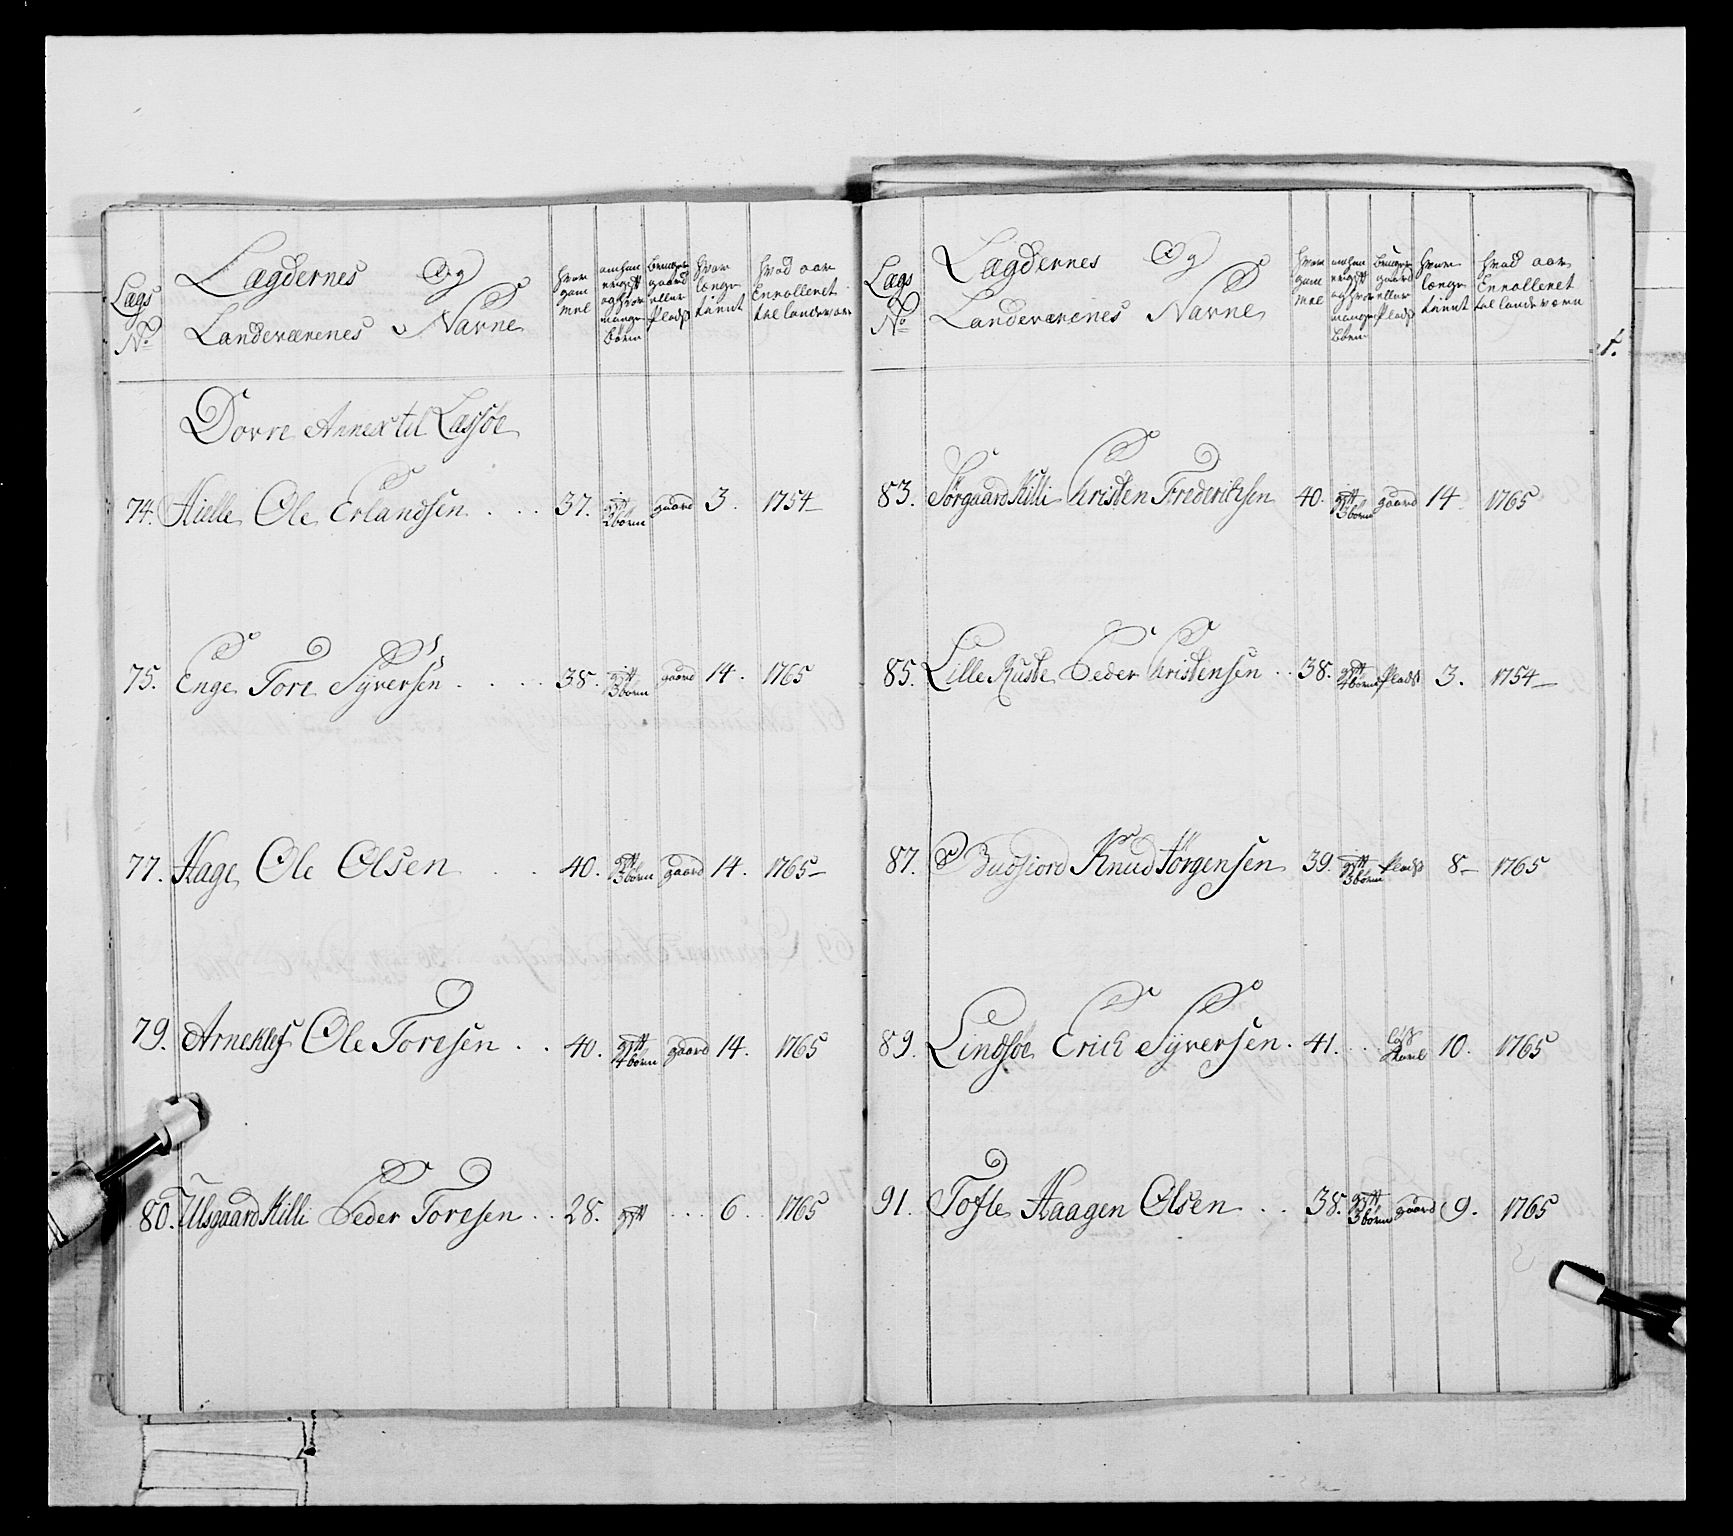 Lægs No
Lægdernes Og
Landeværenes Navne
hvor gammel
om han er gift og hvor mange Børn
hvor længe tient
hvad aar Enrolleret til landevær
Dovre Annex til Lassøe
74. Hielle Ole Erlandsen . . . 37. gift 2 børn gaard 3. 1754
75. Enge Tore Syversen . . . . 38. gift 3 børn gaard 14. 1765
77. Hage Ole Olsen . . 40. gift 3 børn gaard 14. 1765
79. Arneklef Ole Toresen . . 40. gift 4 børn gaard 14. 1765
80. Ulsgaard Killi Peder Toresen . . 28. gift . . . 6 . . 1765
Lægs No
Lægdernes Og
Landeværenes Navne
hvor gammel
om han er gift og hvor mange Børn
gaard eller Plads
hvor længe tient
hvad aar Enrolleret til landeværn
83. Sørgaard Killi Christen Frederichsen 40. gift 3 børn gaard 14 1765
85. Lille Ruste Peder Christensen . . 38. gift 4 børn Plads 3. 1754
87. Knud Jørgensen 39. gift 3 børn Plads 8 1765
89. Lindsøe Erich Syversen . 41. . . løs Karl 10. 1765
91. Tofte Haagen Olsen . . 38. gift 3 børn gaard 9. 1765